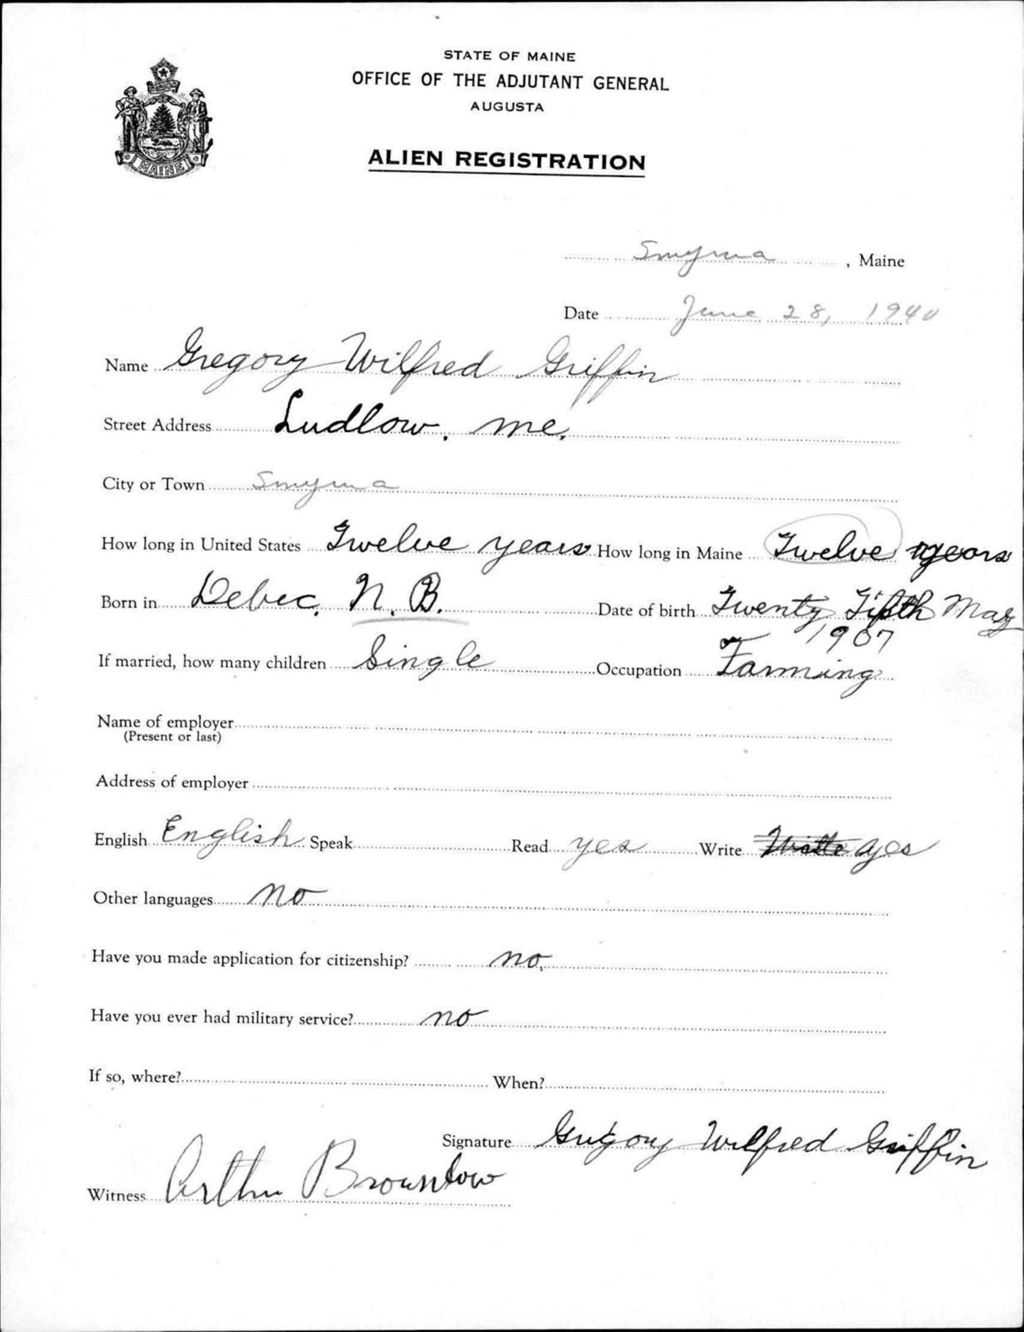 STATE OF MAINE
OFFICE OF THE ADJUTANT GENERAL
AUGUSTA
ALIEN REGISTRATION
MAINE
Smyrna, Maine
Date June 28, 1940
Name Gregory Wilfred Griffin
Street Address Ludlow, Me.
City or Town Smyrna
How long in United States Twelve years How long in Maine Twelve years
Born in Debec, N. B. Date of birth Twenty Fifth May
1907
If married, how many children Single Occupation Farming
Name of employer
(Present or last)
Address of employer
English English Speak Read yes Write yes
Other languages no
Have you made application for citizenship? no.
Have you ever had military service? no
If so, where? When?
Signature Gregory Wilfred Griffin
Witness Arthur Brownlow